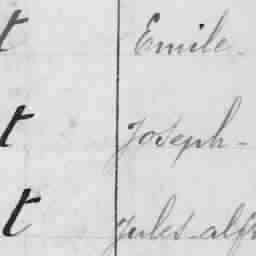 t Emile.
t Joseph.
t Jules-alfr